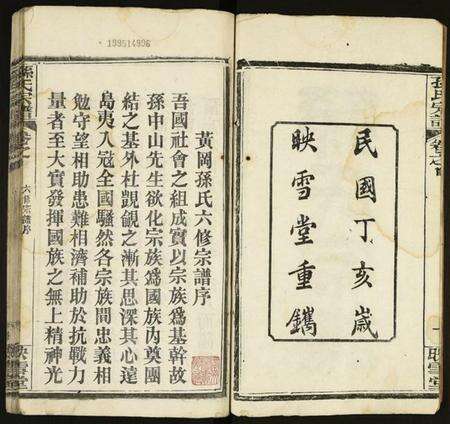 民國丁亥歲
映雪堂重鐫
孫氏宗譜
卷之首
一
映雪堂
199514996
黃岡孫氏六修宗譜序
吾國社會之組成實以宗族爲基幹故
孫中山先生欲化宗族爲國族內奠團
結之基外杜覬覦之漸其思深其心遠
島夷入寇全國騷然各宗族間忠義相
勉守望相助患難相濟補助於抗戰力
量者至大實發揮國族之無上精神光
孫氏宗譜
卷之首
六修宗譜序
映雪堂